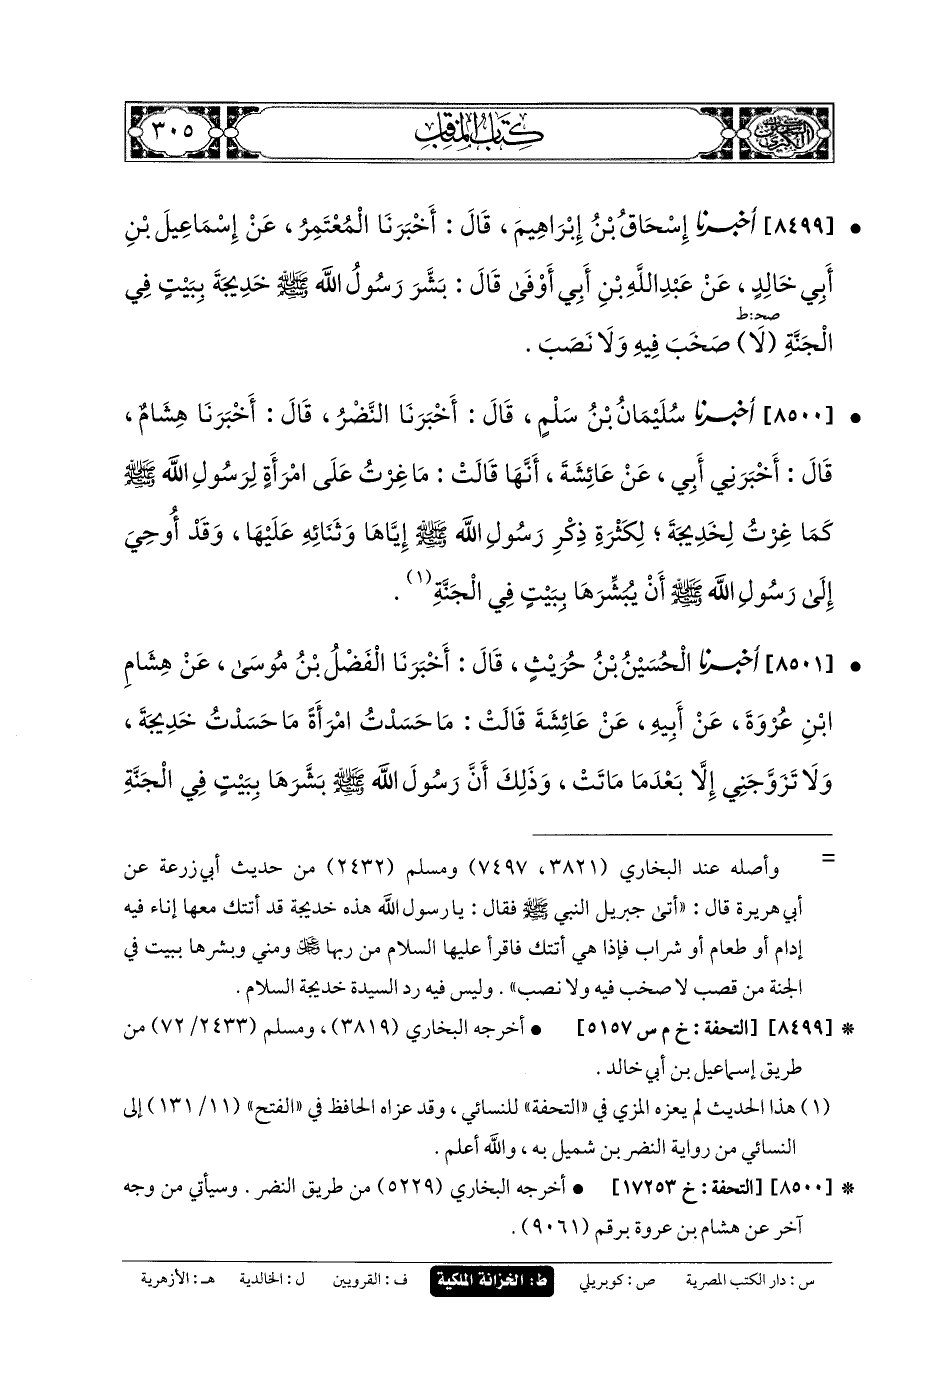 ٣٠٥
كتاب المناقب
السنن الكبرى
• [٨٤٩٩] أخبرنا إِسْحَاقُ بْنُ إِبْرَاهِيمَ ، قَالَ : أَخْبَرَنَا الْمُعْتَمِرُ ، عَنْ إِسْمَاعِيلَ بْنِ
أَبِي خَالِدٍ ، عَنْ عَبْدِاللَّهِ بْنِ أَبِي أَوْفَى قَالَ : بَشَّرَ رَسُولُ اللَّه ﷺ خَدِيجَةَ بِبَيْتٍ فِي
صحـ:ط
الْجَنَّةِ (لَا) صَخَبَ فِيهِ وَلَا نَصَبَ .
• [٨٥٠٠] أخبرنا سُلَيْمَانُ بْنُ سَلْمٍ ، قَالَ : أَخْبَرَنَا النَّضْرُ ، قَالَ : أَخْبَرَنَا هِشَامٌ ،
قَالَ : أَخْبَرَنِي أَبِي ، عَنْ عَائِشَةَ ، أَنَّهَا قَالَتْ : مَا غِرْتُ عَلَى امْرَأَةٍ لِرَسُولِ اللَّه ﷺ
كَمَا غِرْتُ لِخَدِيجَةَ ؛ لِكَثْرَةِ ذِكْرِ رَسُولِ اللَّه ﷺ إِيَّاهَا وَثَنَائِهِ عَلَيْهَا ، وَقَدْ أُوحِيَ
إِلَى رَسُولِ اللَّه ﷺ أَنْ يُبَشِّرَهَا بِبَيْتٍ فِي الْجَنَّةِ (١) .
• [٨٥٠١] أخبرنا الْحُسَيْنُ بْنُ حُرَيْثٍ ، قَالَ : أَخْبَرَنَا الْفَضْلُ بْنُ مُوسَى ، عَنْ هِشَامِ
ابْنِ عُرْوَةَ ، عَنْ أَبِيهِ ، عَنْ عَائِشَةَ قَالَتْ : مَا حَسَدْتُ امْرَأَةً مَا حَسَدْتُ خَدِيجَةَ ،
وَلَا تَزَوَّجَنِي إِلَّا بَعْدَمَا مَاتَتْ ، وَذَلِكَ أَنَّ رَسُولَ اللَّه ﷺ بَشَّرَهَا بِبَيْتٍ فِي الْجَنَّةِ
= وأصله عند البخاري (٣٨٢١، ٧٤٩٧) ومسلم (٢٤٣٢) من حديث أبي زرعة عن
أبي هريرة قال : «أتى جبريل النبي ﷺ فقال : يا رسول الله هذه خديجة قد أتتك معها إناء فيه
إدام أو طعام أو شراب فإذا هي أتتك فاقرأ عليها السلام من ربها ﷻ ومني وبشرها ببيت في
الجنة من قصب لا صخب فيه ولا نصب» . وليس فيه رد السيدة خديجة السلام .
* [٨٤٩٩] [التحفة : خ م س ٥١٥٧] • أخرجه البخاري (٣٨١٩) ، ومسلم (٧٢/٢٤٣٣) من
طريق إسماعيل بن أبي خالد .
(١) هذا الحديث لم يعزه المزي في «التحفة» للنسائي ، وقد عزاه الحافظ في «الفتح» (١١/ ١٣١) إلى
النسائي من رواية النضر بن شميل به ، والله أعلم .
* [٨٥٠٠] [التحفة : خ ١٧٢٥٣] • أخرجه البخاري (٥٢٢٩) من طريق النضر . وسيأتي من وجه
آخر عن هشام بن عروة برقم (٩٠٦١) .
س : دار الكتب المصرية ص : كوبريلي ط : الخزانة الملكية ف : القرويين ل : الخالدية هـ : الأزهرية